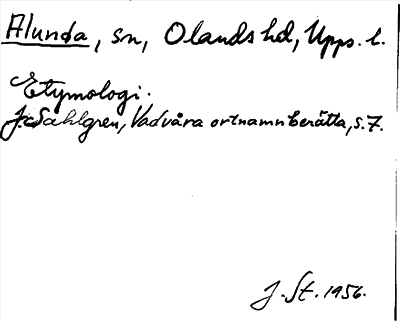 Alunda, sn, Olands hd, Upps. l.
Etymologi.
J. Sahlgren, Vad våra ortnamn berätta, s. 7.
J. St. 1956.